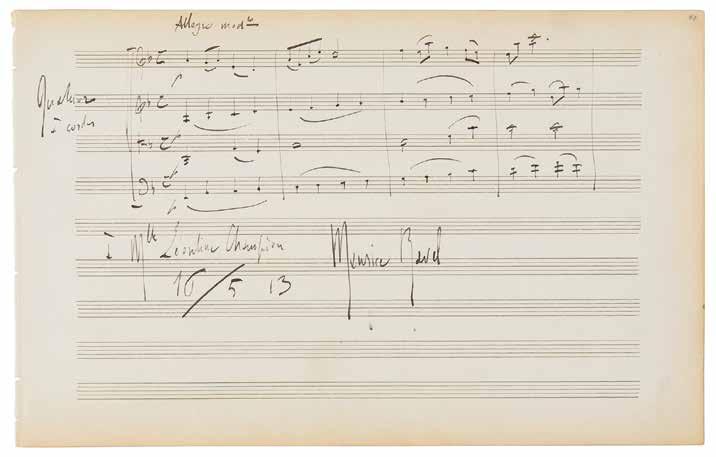 Allegro modto
Quatuor
à cordes
à Mlle Léontine Champion
10/5 13
Maurice Ravel